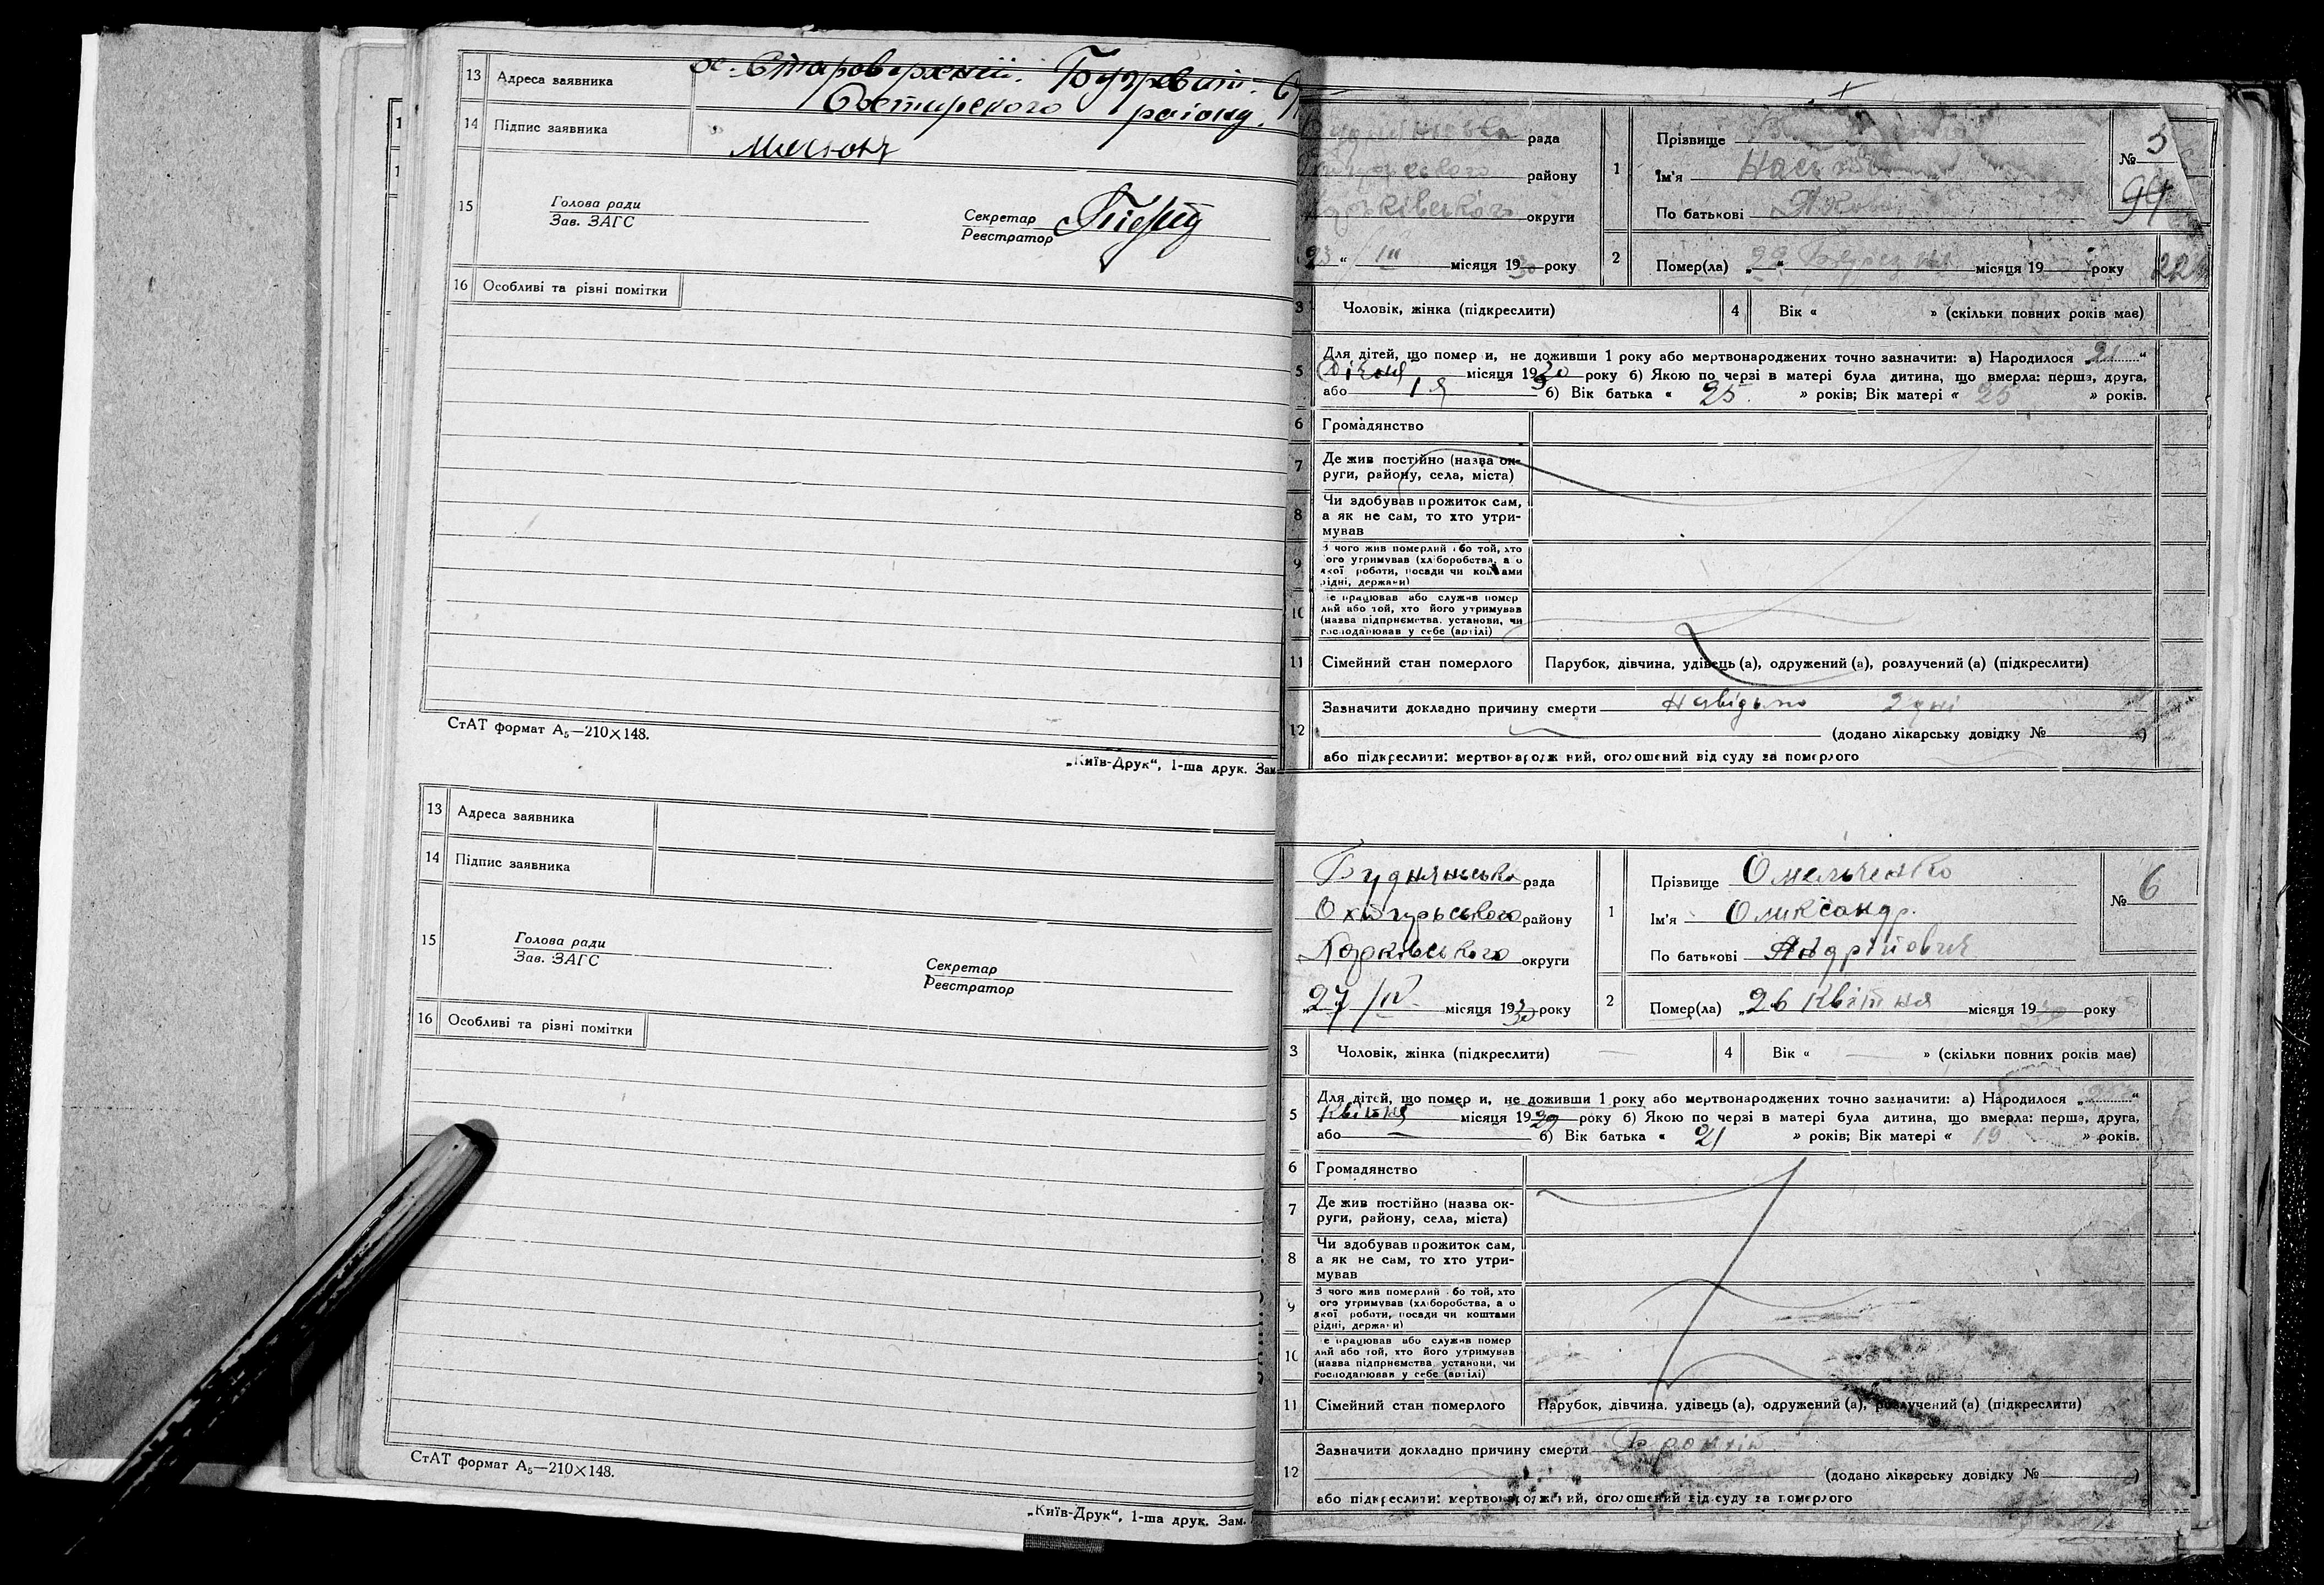 13 Адреса заявника
14 Підпис заявника
15 Голова ради
Зав. ЗАГС
Секретар
Реєстратор
16 Особливі та різні помітки
СтАТ формат А₅—210×148.
„Київ-Друк“, 1-ша друк. Зам.
13 Адреса заявника
14 Підпис заявника
15 Голова ради
Зав. ЗАГС
Секретар
Реєстратор
16 Особливі та різні помітки
СтАТ формат А₅—210×148.
„Київ-Друк“, 1-ша друк. Зам.
рада
району
округи
23 “ /III місяця 1930 року
1 Прізвище
Ім'я
По батькові
№ 5
94
2 Помер(ла) місяця 19 року
3 Чоловік, жінка (підкреслити)
4 Вік « » (скільки повних років має)
5 Для дітей, що помер и, не доживши 1 року або мертвонароджених точно зазначити: а) Народилося „21“
Січня місяця 1930 року б) Якою по черзі в матері була дитина, що вмерла: перша, друга,
або 1я б) Вік батька « 25 » років; Вік матері « 25 » років.
6 Громадянство
7 Де жив постійно (назва ок-
руги, району, села, міста)
8 Чи здобував прожиток сам,
а як не сам, то хто утри-
мував
9 З чого жив померлий або той, хто
ого утримував (хліборобства, а о
якої роботи, посади чи коштами
рідні, держави)
10 е працював або служив помер
лий або той, хто його утримував
(назва підприємства, установи, чи
господарював у себе (артілі)
11 Сімейний стан померлого
Парубок, дівчина, удівець (а), одружений (а), розлучений (а) (підкреслити)
12 Зазначити докладно причину смерти невідомо 2 дні
(додано лікарську довідку № )
або підкреслити: мертвонароджений, оголошений від суду за померлого
Буднянська рада
Охтирського району
Харківського округи
„27 /IV місяця 1930 року
1 Прізвище Омельченко
Ім'я Олександр
По батькові Андрійович
№ 6
2 Помер(ла) „26 Квітня місяця 1930 року
3 Чоловік, жінка (підкреслити)
4 Вік « — » (скільки повних років має)
5 Для дітей, що помер и, не доживши 1 року або мертвонароджених точно зазначити: а) Народилося „ “
Квітня місяця 1929 року б) Якою по черзі в матері була дитина, що вмерла: перша, друга,
або — б) Вік батька « 21 » років; Вік матері « 19 » років.
6 Громадянство
7 Де жив постійно (назва ок-
руги, району, села, міста)
8 Чи здобував прожиток сам,
а як не сам, то хто утри-
мував
9 З чого жив померлий або той, хто
ого утримував (хліборобства, а о
якої роботи, посади чи коштами
рідні, держави)
10 е працював або служив помер
лий або той, хто його утримував
(назва підприємства, установи, чи
господарював у себе (артілі)
11 Сімейний стан померлого
Парубок, дівчина, удівець (а), одружений (а), розлучений (а) (підкреслити)
12 Зазначити докладно причину смерти Бронхіт
(додано лікарську довідку № )
або підкреслити: мертвонароджений, оголошений від суду за померлого